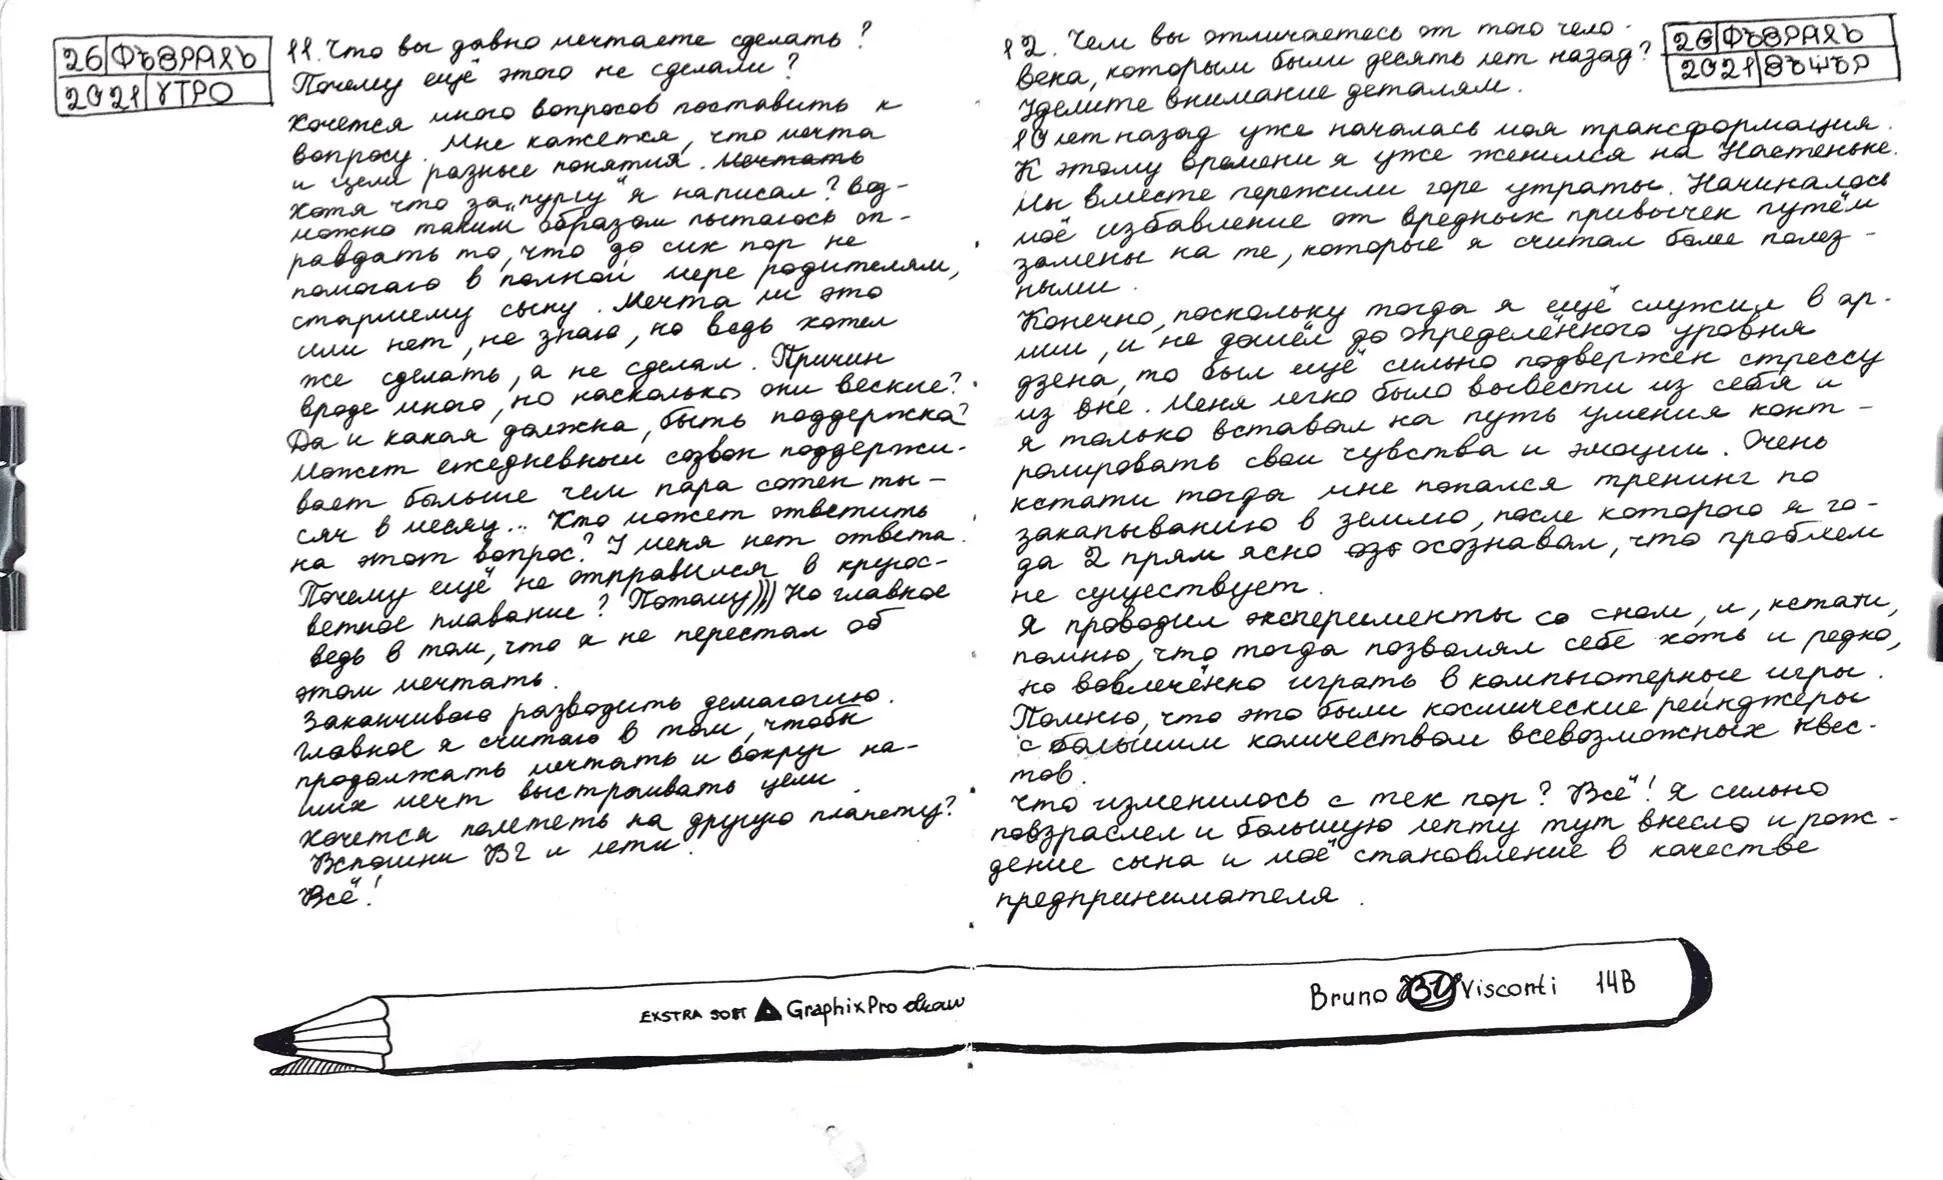 26 ФЪВРАЛЬ
2021 УТРО
11. Что вы давно мечтаете сделать?
Почему ещё этого не сделали?
Хочется много вопросов поставить к
вопросу. Мне кажется, что мечта
и цели разные понятия. Мечтать
Хотя что за „пургу" я написал? Воз-
можно таким образом пытаюсь оп-
равдать то, что до сих пор не
помогаю в полной мере родителям,
старшему сыну. Мечта ли это
или нет, не знаю, но ведь хотел
же сделать, а не сделал. Причин
вроде много, но насколько они веские?
Да и какая должна быть поддержка?
Может ежедневный созвон поддержи-
вает больше чем пара сотен ты-
сяч в месяц... Кто может ответить
на этот вопрос? У меня нет ответа.
Почему ещё не отправился в кругос-
ветное плавание? Потому))) Но главное
ведь в том, что я не перестал об
этом мечтать.
Заканчиваю разводить демагогию.
Главное я считаю в том, чтобы
продолжать мечтать и вокруг на-
ших мечт выстраивать цели.
Хочется полететь на другую планету?
Вспомни В2 и лети.
Всё!
26 ФЪВРАЛЬ
2021 ВЪЧЪР
12. Чем вы отличаетесь от того чело-
века, которым были десять лет назад?
Уделите внимание деталям.
10 лет назад уже началась моя трансформация.
К этому времени я уже женился на Настеньке.
Мы вместе пережили горе утраты. Начиналось
моё избавление от вредных привычек путём
замены на те, которые я считал более полез-
ными.
Конечно, поскольку тогда я ещё служил в ар-
мии, и не дошёл до определённого уровня
дзена, то был ещё сильно подвержен стрессу
из вне. Меня легко было вывести из себя и
я только вставал на путь умения конт-
ролировать свои чувства и эмоции. Очень
кстати тогда мне попался тренинг по
закапыванию в землю, после которого я го-
да 2 прям ясно осознавал, что проблем
не существует.
Я проводил эксперименты со сном, и, кстати,
помню, что тогда позволял себе хоть и редко,
но вовлечённо играть в компьютерные игры.
Помню, что это были космические рейнджеры
с большим количеством всевозможных квес-
тов.
Что изменилось с тех пор? Всё! Я сильно
повзрослел и большую лепту тут внесло и рож-
дение сына и моё становление в качестве
предпринимателя.
EXSTRA SOFT GraphixPro draw
Bruno BV Visconti 14B